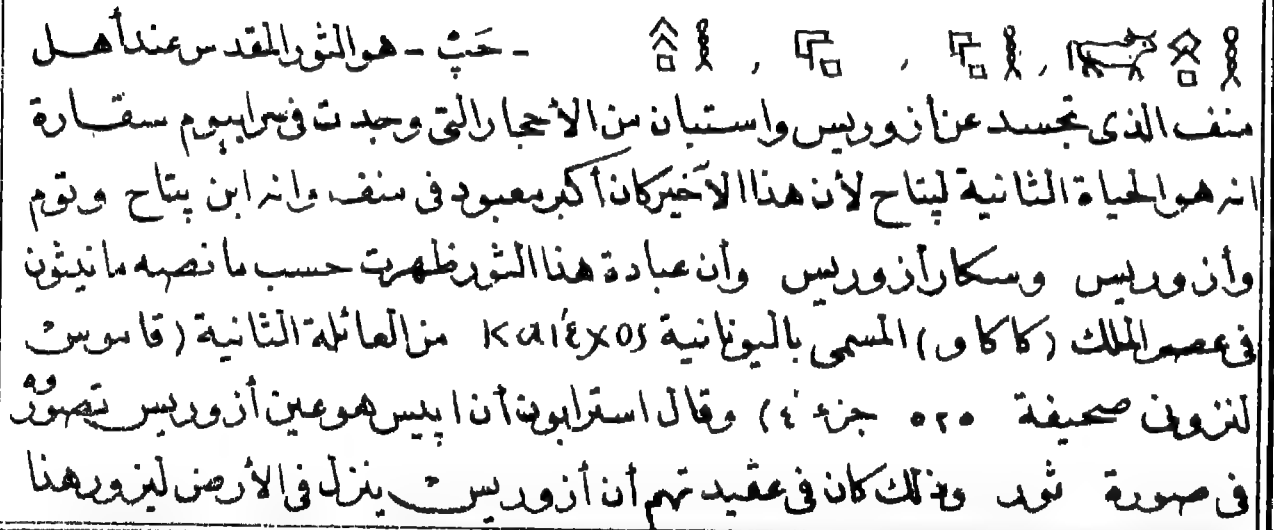 - حَپْ - هو الثور المقدس عند أهل
منف الذى تجسد عن أزوريس واستبان من الأحجار التى وجدت فى سرابيوم سقارة
انه هو الحياة الثانية لپتاح لأن هذا الآخير كان أكبر معبود فى منف وانه ابن پتاح وتوم
وأزوريس وسكار أزوريس وأن عبادة هذا الثور ظهرت حسب ما نصبه مانيثون
فى عصر الملك (كاكاو) المسمى باليونانية من العائلة الثانية (قاموس
لنزونى صحيفة ٥٢٥ جزء ٤) وقال استرابون أن اپيس هو عين أزوريس تصوروه
فى صورة ثور وذلك كان فى عقيدتهم أن أزوريس ينزل فى الأرض ليزور هنا